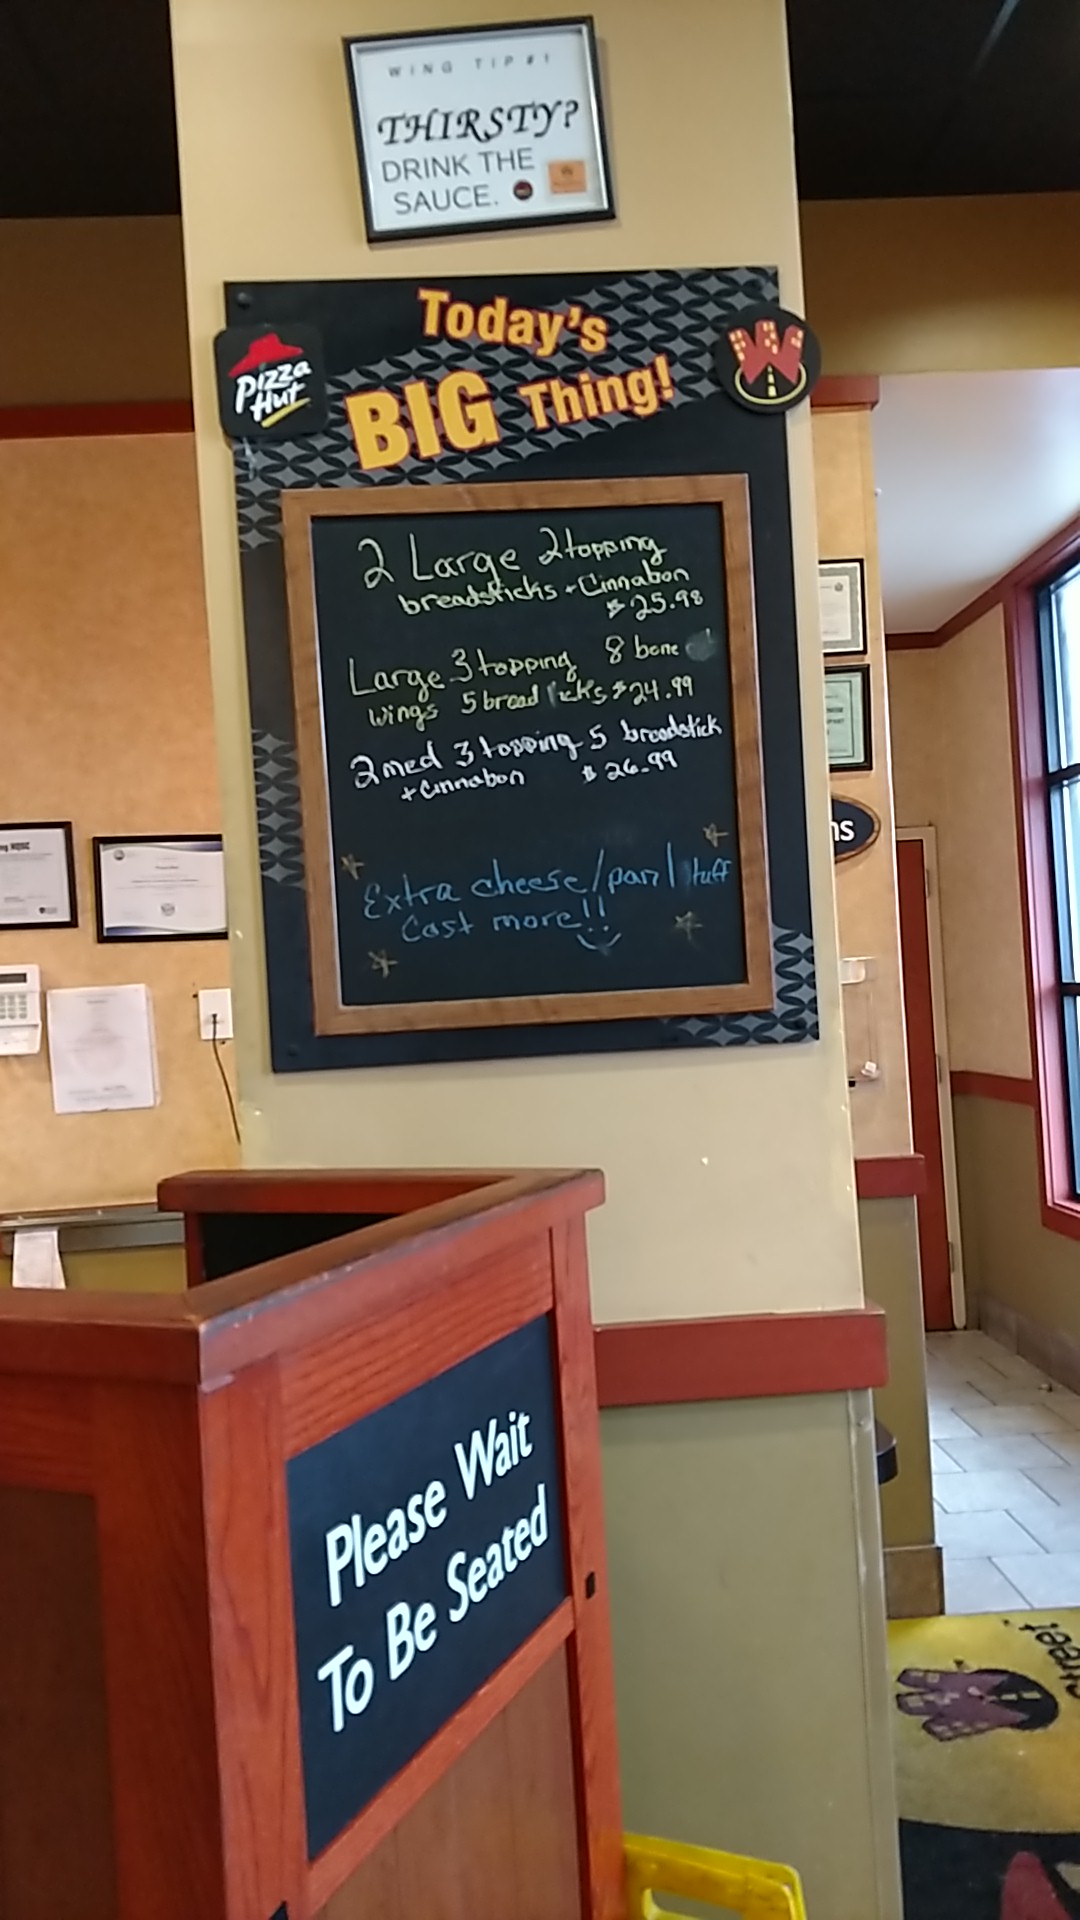 WING TIP #1
THIRSTY?
DRINK THE
SAUCE.
Today's
BIG Thing!
Pizza
Hut
W
2 Large 2 topping
breadsticks + Cinnabon
$25.98
Large 3 topping 8 bone
wings 5 bread icks $24.99
2 med 3 topping 5 breadstick
+ Cinnabon $26.99
Extra cheese/pan/ tuff
Cost more!!
ns
Please Wait
To Be Seated
treet